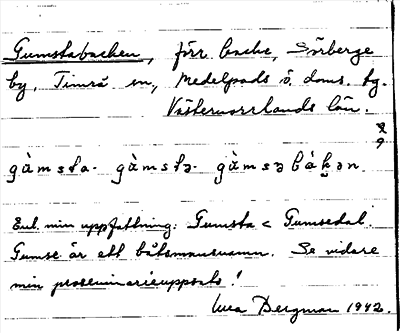 Gumstabacken, förr backe, Sörberge
by, Timrå sn, Medelpads ö. doms. tg.
Västernorrlands län.
gàmsta- gàmstə- gàmsəbàkən
Enl. min uppfattning: Gumsta < Gumsedal.
Gumse är ett båtsmansnamn. Se vidare
min proseminarieuppsats!
Bergman 1942.